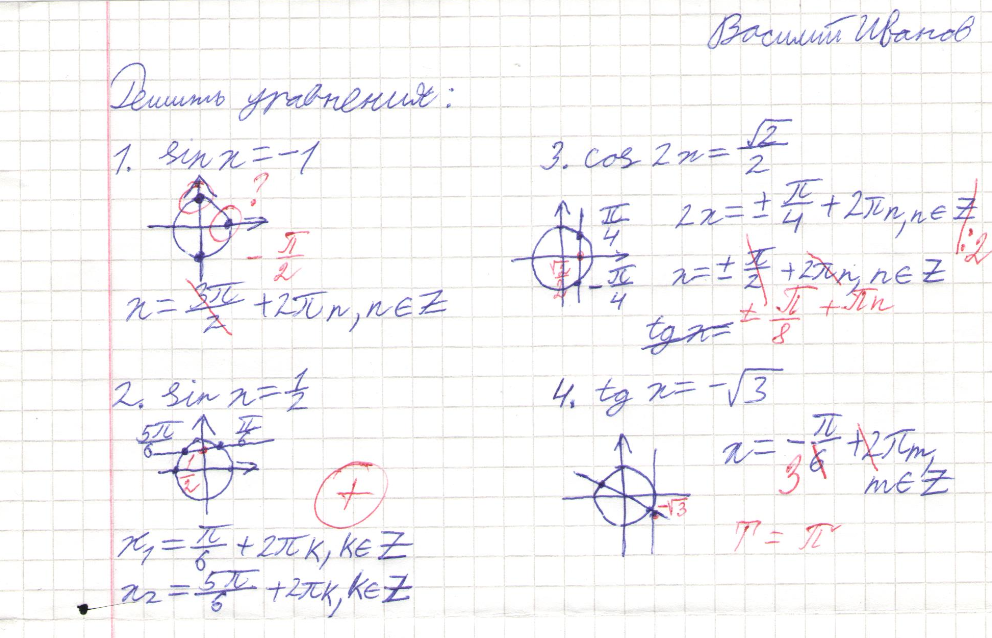 Василий Иванов
Решить уравнения:
1. sin x = -1
?
- π/2
x = 3π/2 + 2πn, n ∈ Z
2. sin x = 1/2
5π/6 π/6
1/2
+
x₁ = π/6 + 2πk, k ∈ Z
x₂ = 5π/6 + 2πk, k ∈ Z
3. cos 2x = √2/2
π/4
√2/2
- π/4
2x = ± π/4 + 2πn, n ∈ Z
:2
x = ± π/2 + 2πn, n ∈ Z
± π/8 + πn
tg x =
4. tg x = -√3
-√3
x = - π/6 + 2πm,
3 m ∈ Z
T = π